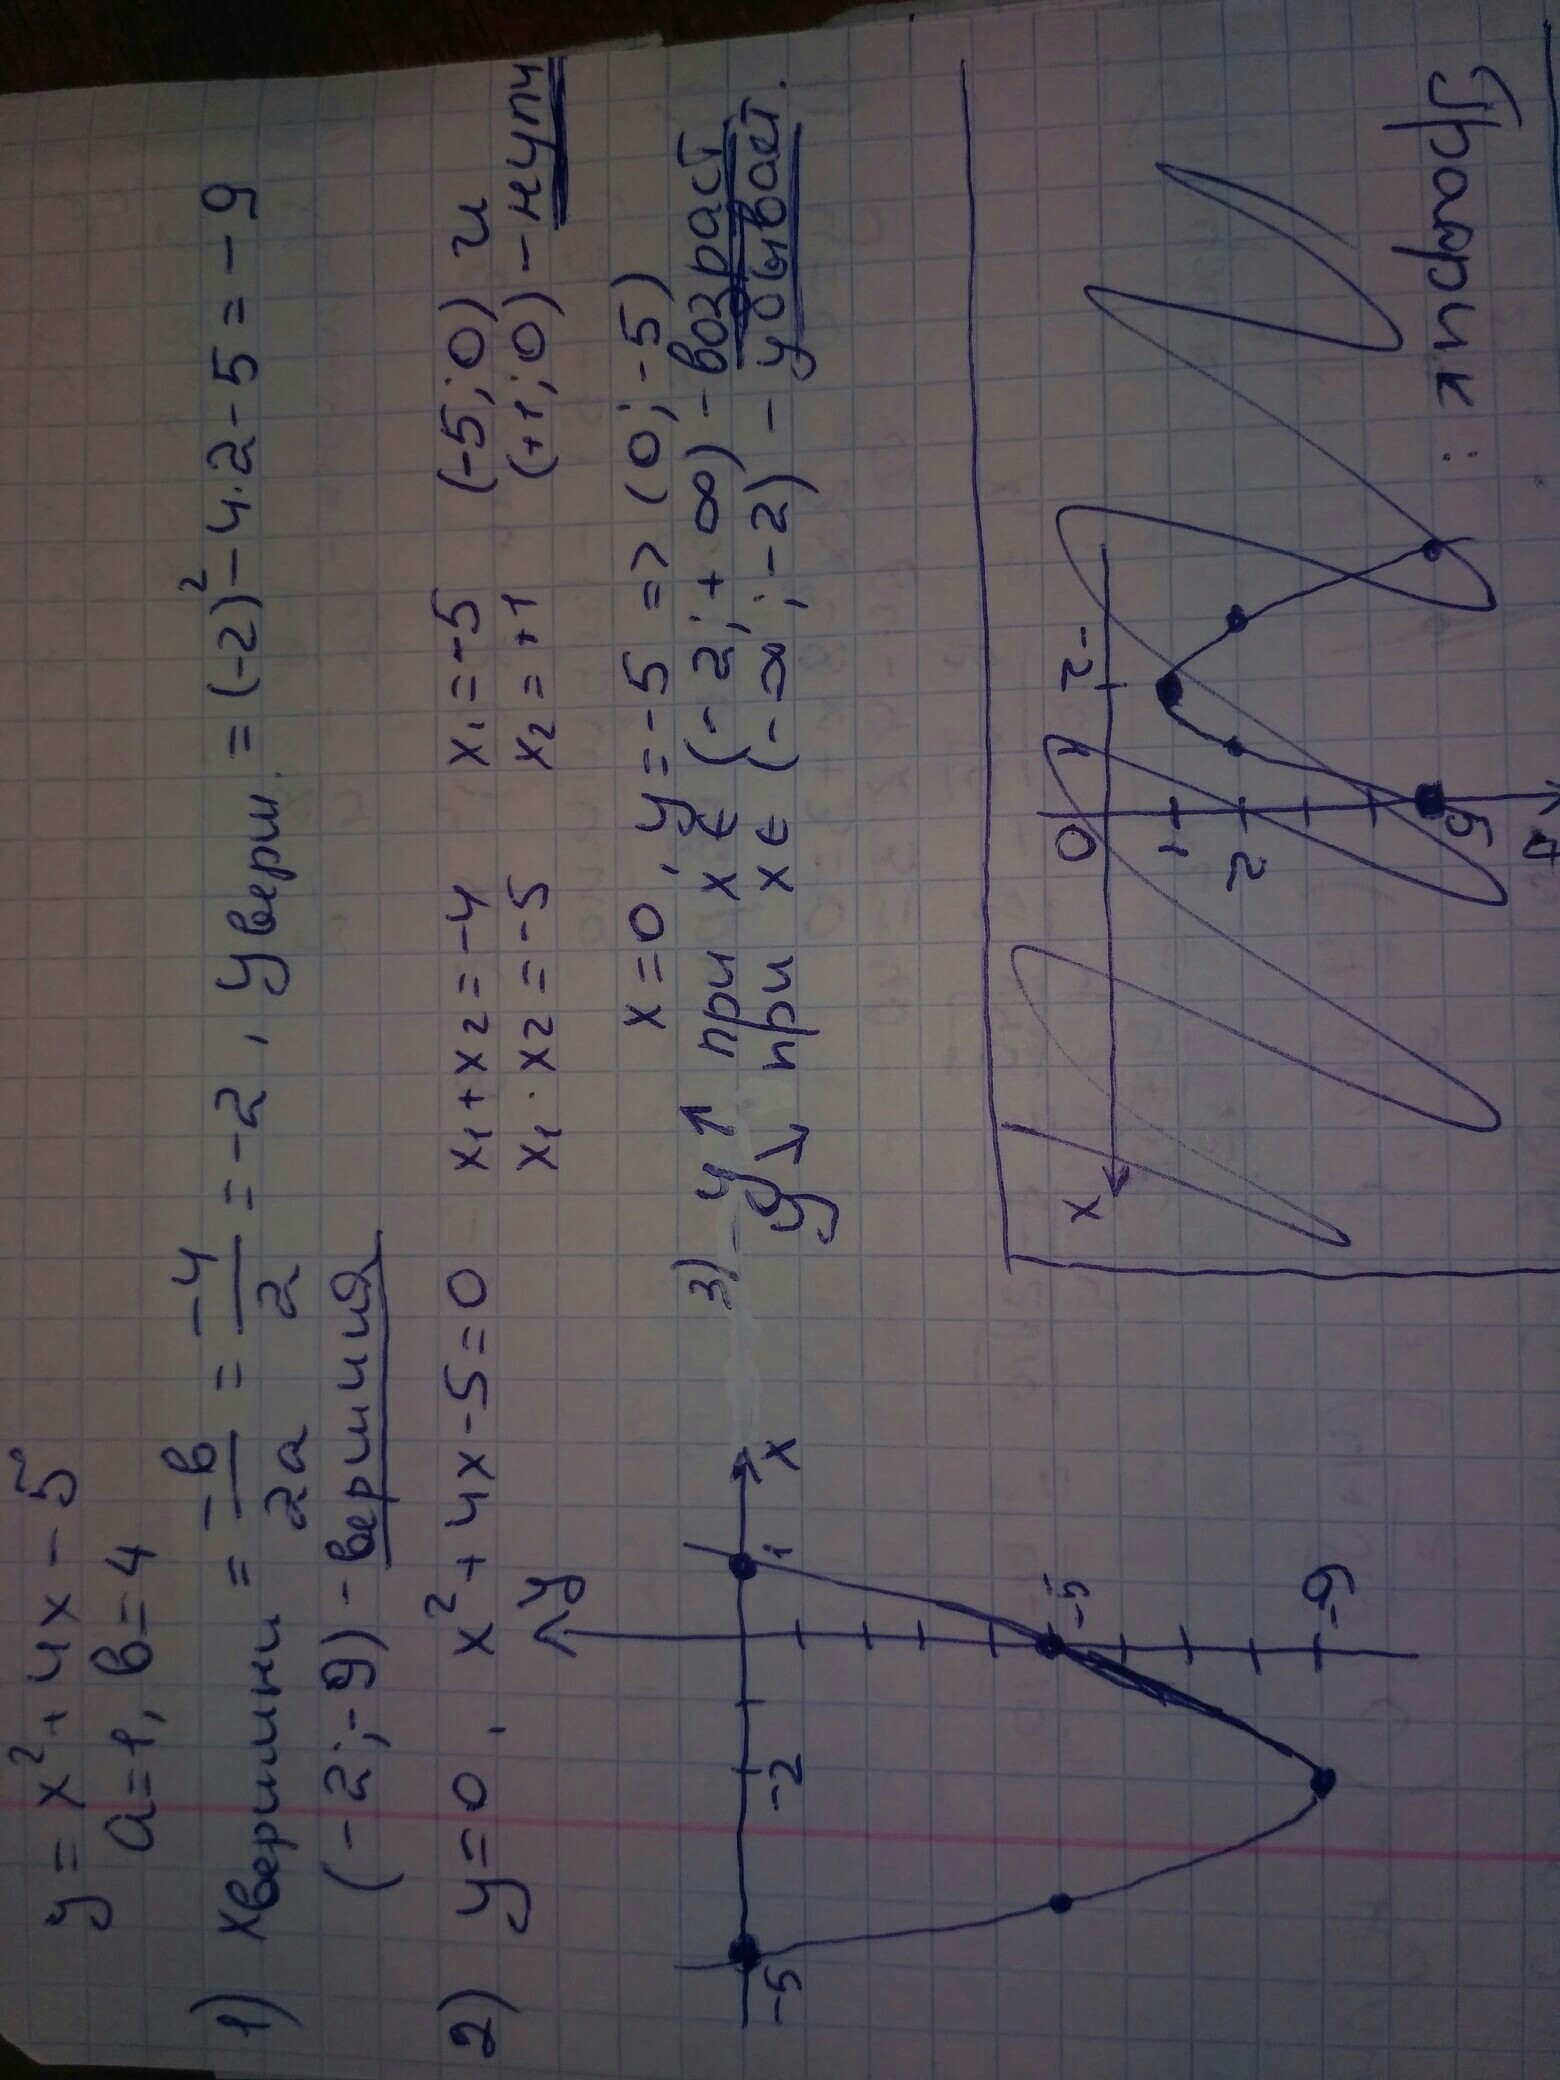 y = x² + 4x - 5
a=1, b=4
1) x вершины = -b/2a = -4/2 = -2, y верш. = (-2)² - 4·2 - 5 = -9
(-2; -9) - вершина
2) y=0, x² + 4x - 5 = 0 x₁ + x₂ = -4 x₁ = -5 (-5; 0) и
x₁ · x₂ = -5 x₂ = +1 (+1; 0) - нули
x=0, y = -5 => (0; -5)
3) y↑ при x ∈ (-2; +∞) - возраст
y↓ при x ∈ (-∞; -2) - убывает.
y
x
1
-2
-5
-5
-9
График :
x
0
-2
1
2
5